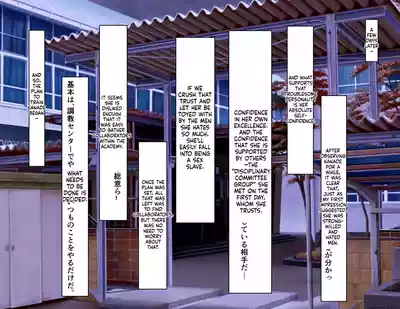 A FEW
DAYS
LATER-
AFTER
OBSERVING
KANADE
FOR A
WHILE,
IT WAS
CLEAR
THAT,
JUST AS
MY FIRST
IMPRESSION
SUGGESTED
SHE WAS
STRONG-
WILLED
AND
HATED
MEN.
が分かっ
AND
WHAT
SUPPORTS
THAT
TROUBLESOME
PERSONALITY
IS HER
ABSOLUTE
SELF-
CONFIDENCE
CONFIDENCE
IN HER OWN
EXCELLENCE.
AND THE
CONFIDENCE
THAT SHE IS
SUPPORTED
BY OTHERS
-THE
"DISCIPLINARY
COMMITTEE
GROUP" SHE
MET ON THE
FIRST DAY,
WHOM SHE
TRUSTS.
ている相手だ―
IF WE
CRUSH THAT
TRUST AND
LET HER BE
TOYED WITH
BY THE MEN
SHE HATES
SO MUCH.
SHE'LL
EASILY FALL
INTO BEING
A SEX
SLAVE.
ONCE THE
PLAN WAS
SET, ALL
THAT WAS
LEFT WAS
TO FIND
COLLABORATORS
BUT THERE
WAS NO
NEED TO
WORRY
ABOUT
THAT.
IT SEEMS
SHE IS
DISLIKED
ENOUGH
THAT IT
WAS EASY
TO GATHER
COLLABORATORS
WITHIN THE
ACADEMY.
総意ら―
基本は、調教センターでや
WHAT
NEEDS TO
BE DONE IS
DECIDED.
つものことをやるだけだ。
AND
SO, THE
PLAN TO
TRAIN
KANADE
BEGAN